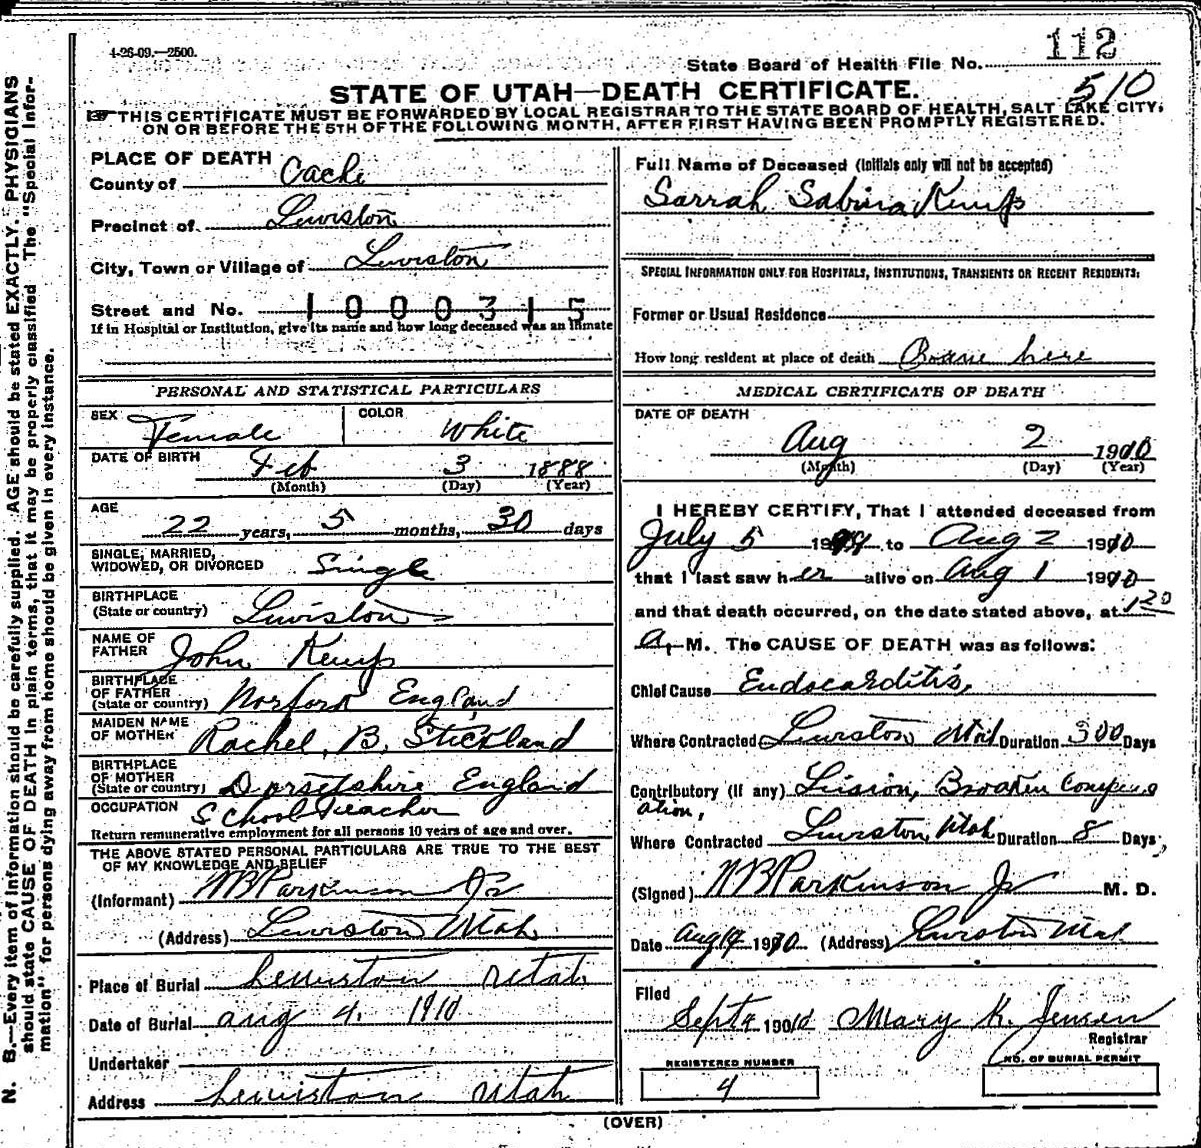 4-26-09.—2500.
112
State Board of Health File No.
510
STATE OF UTAH—DEATH CERTIFICATE.
THIS CERTIFICATE MUST BE FORWARDED BY LOCAL REGISTRAR TO THE STATE BOARD OF HEALTH, SALT LAKE CITY,
ON OR BEFORE THE 5TH OF THE FOLLOWING MONTH, AFTER FIRST HAVING BEEN PROMPTLY REGISTERED.
N. B.—Every item of information should be carefully supplied. AGE should be stated EXACTLY. PHYSICIANS
should state CAUSE OF DEATH in plain terms, that it may be properly classified. The "Special Infor-
mation" for persons dying away from home should be given in every instance.
PLACE OF DEATH
County of Cache
Precinct of Lewiston
City, Town or Village of Lewiston
Street and No. 1000315
If in Hospital or Institution, give its name and how long deceased was an inmate
PERSONAL AND STATISTICAL PARTICULARS
SEX Female COLOR White
DATE OF BIRTH Feb 3 1888
(Month) (Day) (Year)
AGE
22 years, 5 months, 30 days
SINGLE, MARRIED,
WIDOWED, OR DIVORCED Single
BIRTHPLACE
(State or country) Lewiston
NAME OF
FATHER John Kemp
BIRTHPLACE
OF FATHER
(State or country) Norford England
MAIDEN NAME
OF MOTHER Rachel B. Stickland
BIRTHPLACE
OF MOTHER
(State or country) Dorsetshire England
OCCUPATION School Teacher
Return remunerative employment for all persons 10 years of age and over.
THE ABOVE STATED PERSONAL PARTICULARS ARE TRUE TO THE BEST
OF MY KNOWLEDGE AND BELIEF
(Informant) WB Parkinson Jr
(Address) Lewiston Utah
Place of Burial Lewiston Utah
Date of Burial aug 4. 1910
Undertaker
Address Lewiston Utah
Full Name of Deceased (Initials only will not be accepted)
Sarrah Sabina Kemp
SPECIAL INFORMATION ONLY FOR HOSPITALS, INSTITUTIONS, TRANSIENTS OR RECENT RESIDENTS:
Former or Usual Residence
How long resident at place of death here
MEDICAL CERTIFICATE OF DEATH
DATE OF DEATH
Aug 2 1910
(Month) (Day) (Year)
I HEREBY CERTIFY, That I attended deceased from
July 5 to Aug 2 1910
that I last saw her alive on Aug 1 1910
and that death occurred, on the date stated above, at 1 20
A. M. The CAUSE OF DEATH was as follows:
Chief Cause Endocarditis,
Where Contracted Lewiston Utah Duration 300 Days
Contributory (if any) Lision, Broaken Compens
ation,
Where Contracted Lewiston, Utah Duration 8 Days,
(Signed) WB Parkinson Jr M. D.
Date Aug (Address) Lewiston Utah
Filed
Sept 4 1910 Mary K. Jensen
Registrar
REGISTERED NUMBER
4
NO. OF BURIAL PERMIT
(OVER)